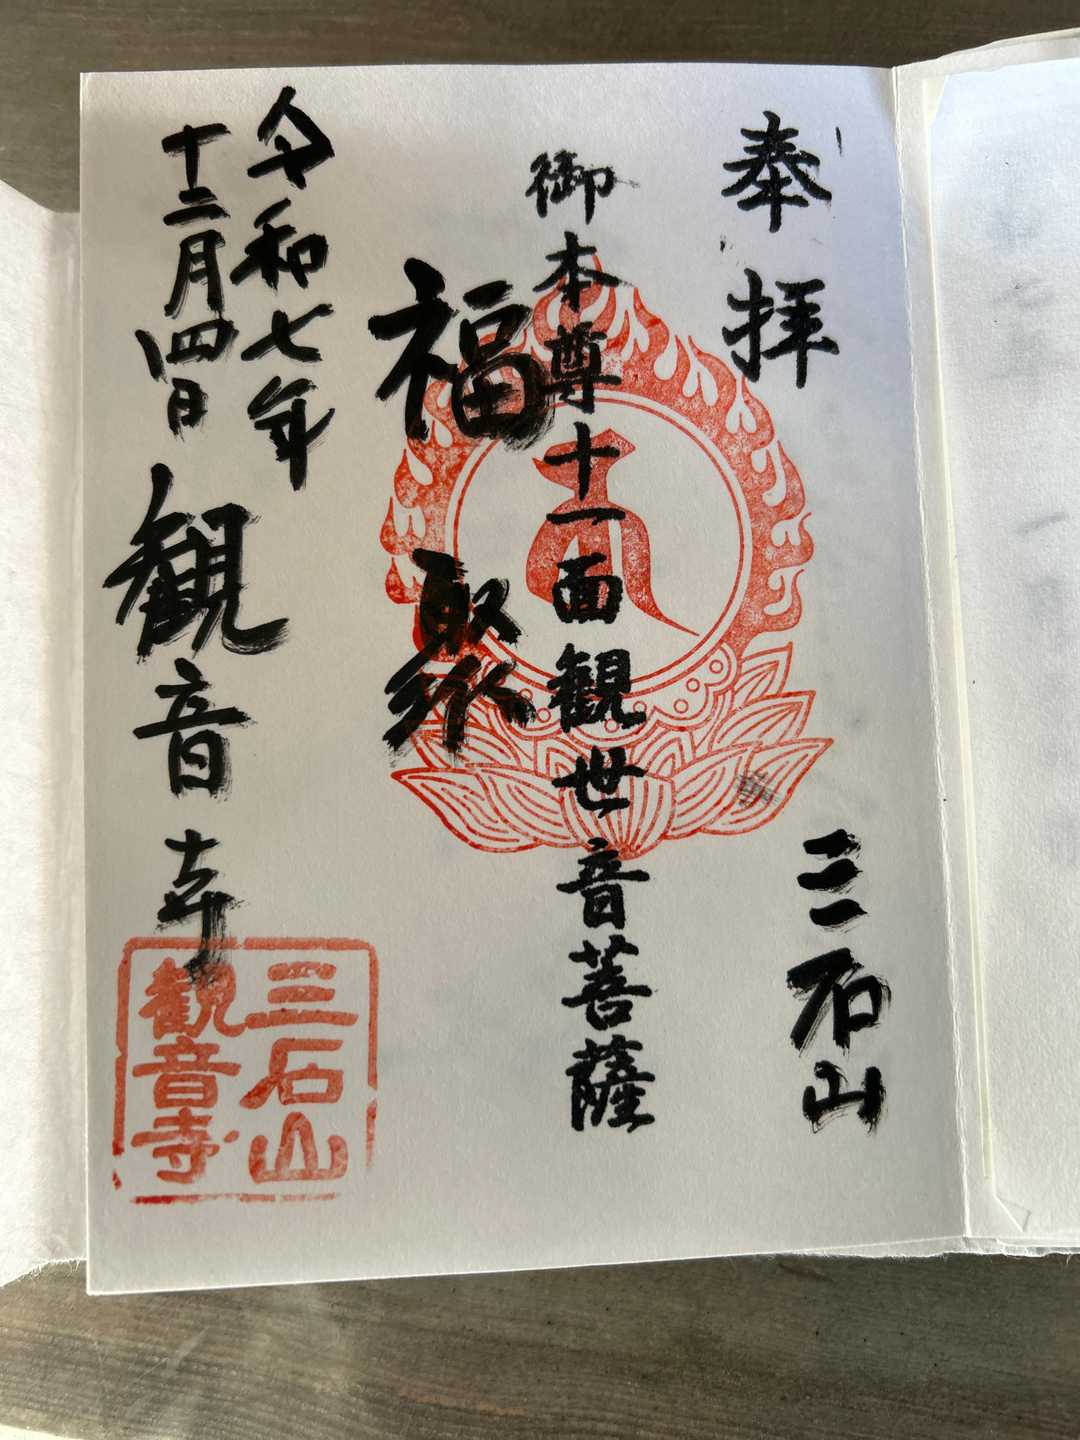 奉拝
三石山
御本尊十一面観世音菩薩
福聚
令和七年
十二月四日
観音寺
三石山
観音寺